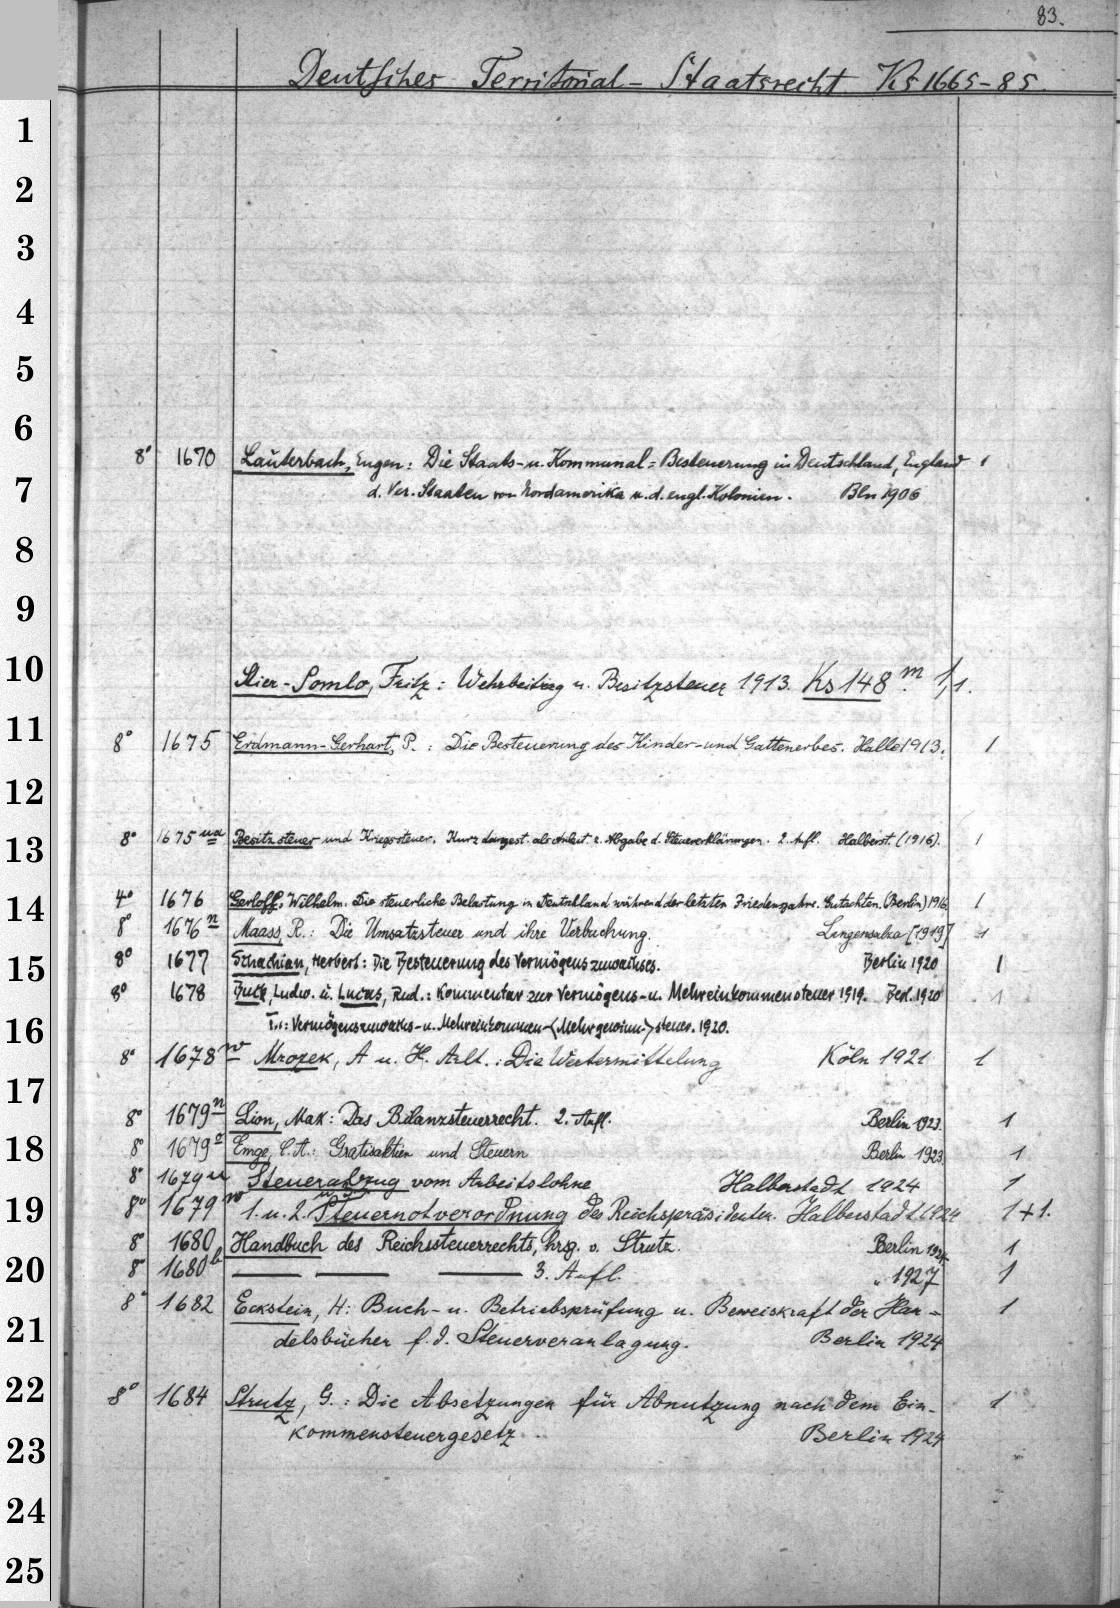 83.
Deutsches Territorial-Staatsrecht Ks 1665-85.
1
2
3
4
5
6
8° 1670 Lauterbach, Eugen: Die Staats- u. Kommunal-Besteuerung in Deutschland, England 1
7
d. Ver. Staaten von Nordamerika u. d. engl. Kolonien. Bln 1906
8
9
10
Stier-Somlo, Fritz: Wehrbeitrag u. Besitzsteuer 1913. Ks 148 m. 1,1.
11
8° 1675 Erdmann-Gerhart, P.: Die Besteuerung des Kinder- und Gattenerbes. Halle 1913. 1
12
13
8° 1675 ua Besitzsteuer und Kriegssteuer. Kurz dargest. als Anleit. z. Abgabe d. Steuererklärungen. 2. Aufl. Halberst. (1916). 1
14
4° 1676 Gerloff, Wilhelm. Die steuerliche Belastung in Deutschland während der letzten Friedensjahre. Gutachten. (Berlin) 1916 1
8° 1676 n Maass, R.: Die Umsatzsteuer und ihre Verbuchung. Langensalza [1919] 1
15
8° 1677 Schachian, Herbert: Die Besteuerung des Vermögenszuwachses. Berlin 1920 1
8° 1678 Buck, Ludw. u. Lucas, Rud.: Kommentar zur Vermögens- u. Mehreinkommensteuer 1919. Berl. 1920 1
16
T..: Vermögenszuwachs- u. Mehreinkommen- (Mehrgewinn-) steuer. 1920.
8° 1678 w Mrozek, A u. H. Arlt.: Die Wertermittelung Köln 1921 1
17
8° 1679 n Lion, Max: Das Bilanzsteuerrecht. 2. Aufl. Berlin 1923. 1
18
8° 1679 Emge, C. A.: Gratisaktien und Steuern Berlin 1923 1
8° 1679 u Steuerabzug vom Arbeitslohne Halberstadt 1924 1
19
8° 1679 w 1. u. 2. u. 3. Steuernotverordnung des Reichspräsidenten. Halberstadt 1924 1+1.
8° 1680 Handbuch des Reichssteuerrechts, hrsg. v. Strutz. Berlin 1924 1
20
8° 1680 b — — — 3. Aufl. " 1927 1
8° 1682 Eckstein, H: Buch- u. Betriebsprüfung u. Beweiskraft der Han-1
21
delsbücher f. d. Steuerveranlagung. Berlin 1924
22
8° 1684 Strutz, G.: Die Absetzungen für Abnutzung nach dem Ein- 1
23
kommensteuergesetz Berlin 1924
24
25